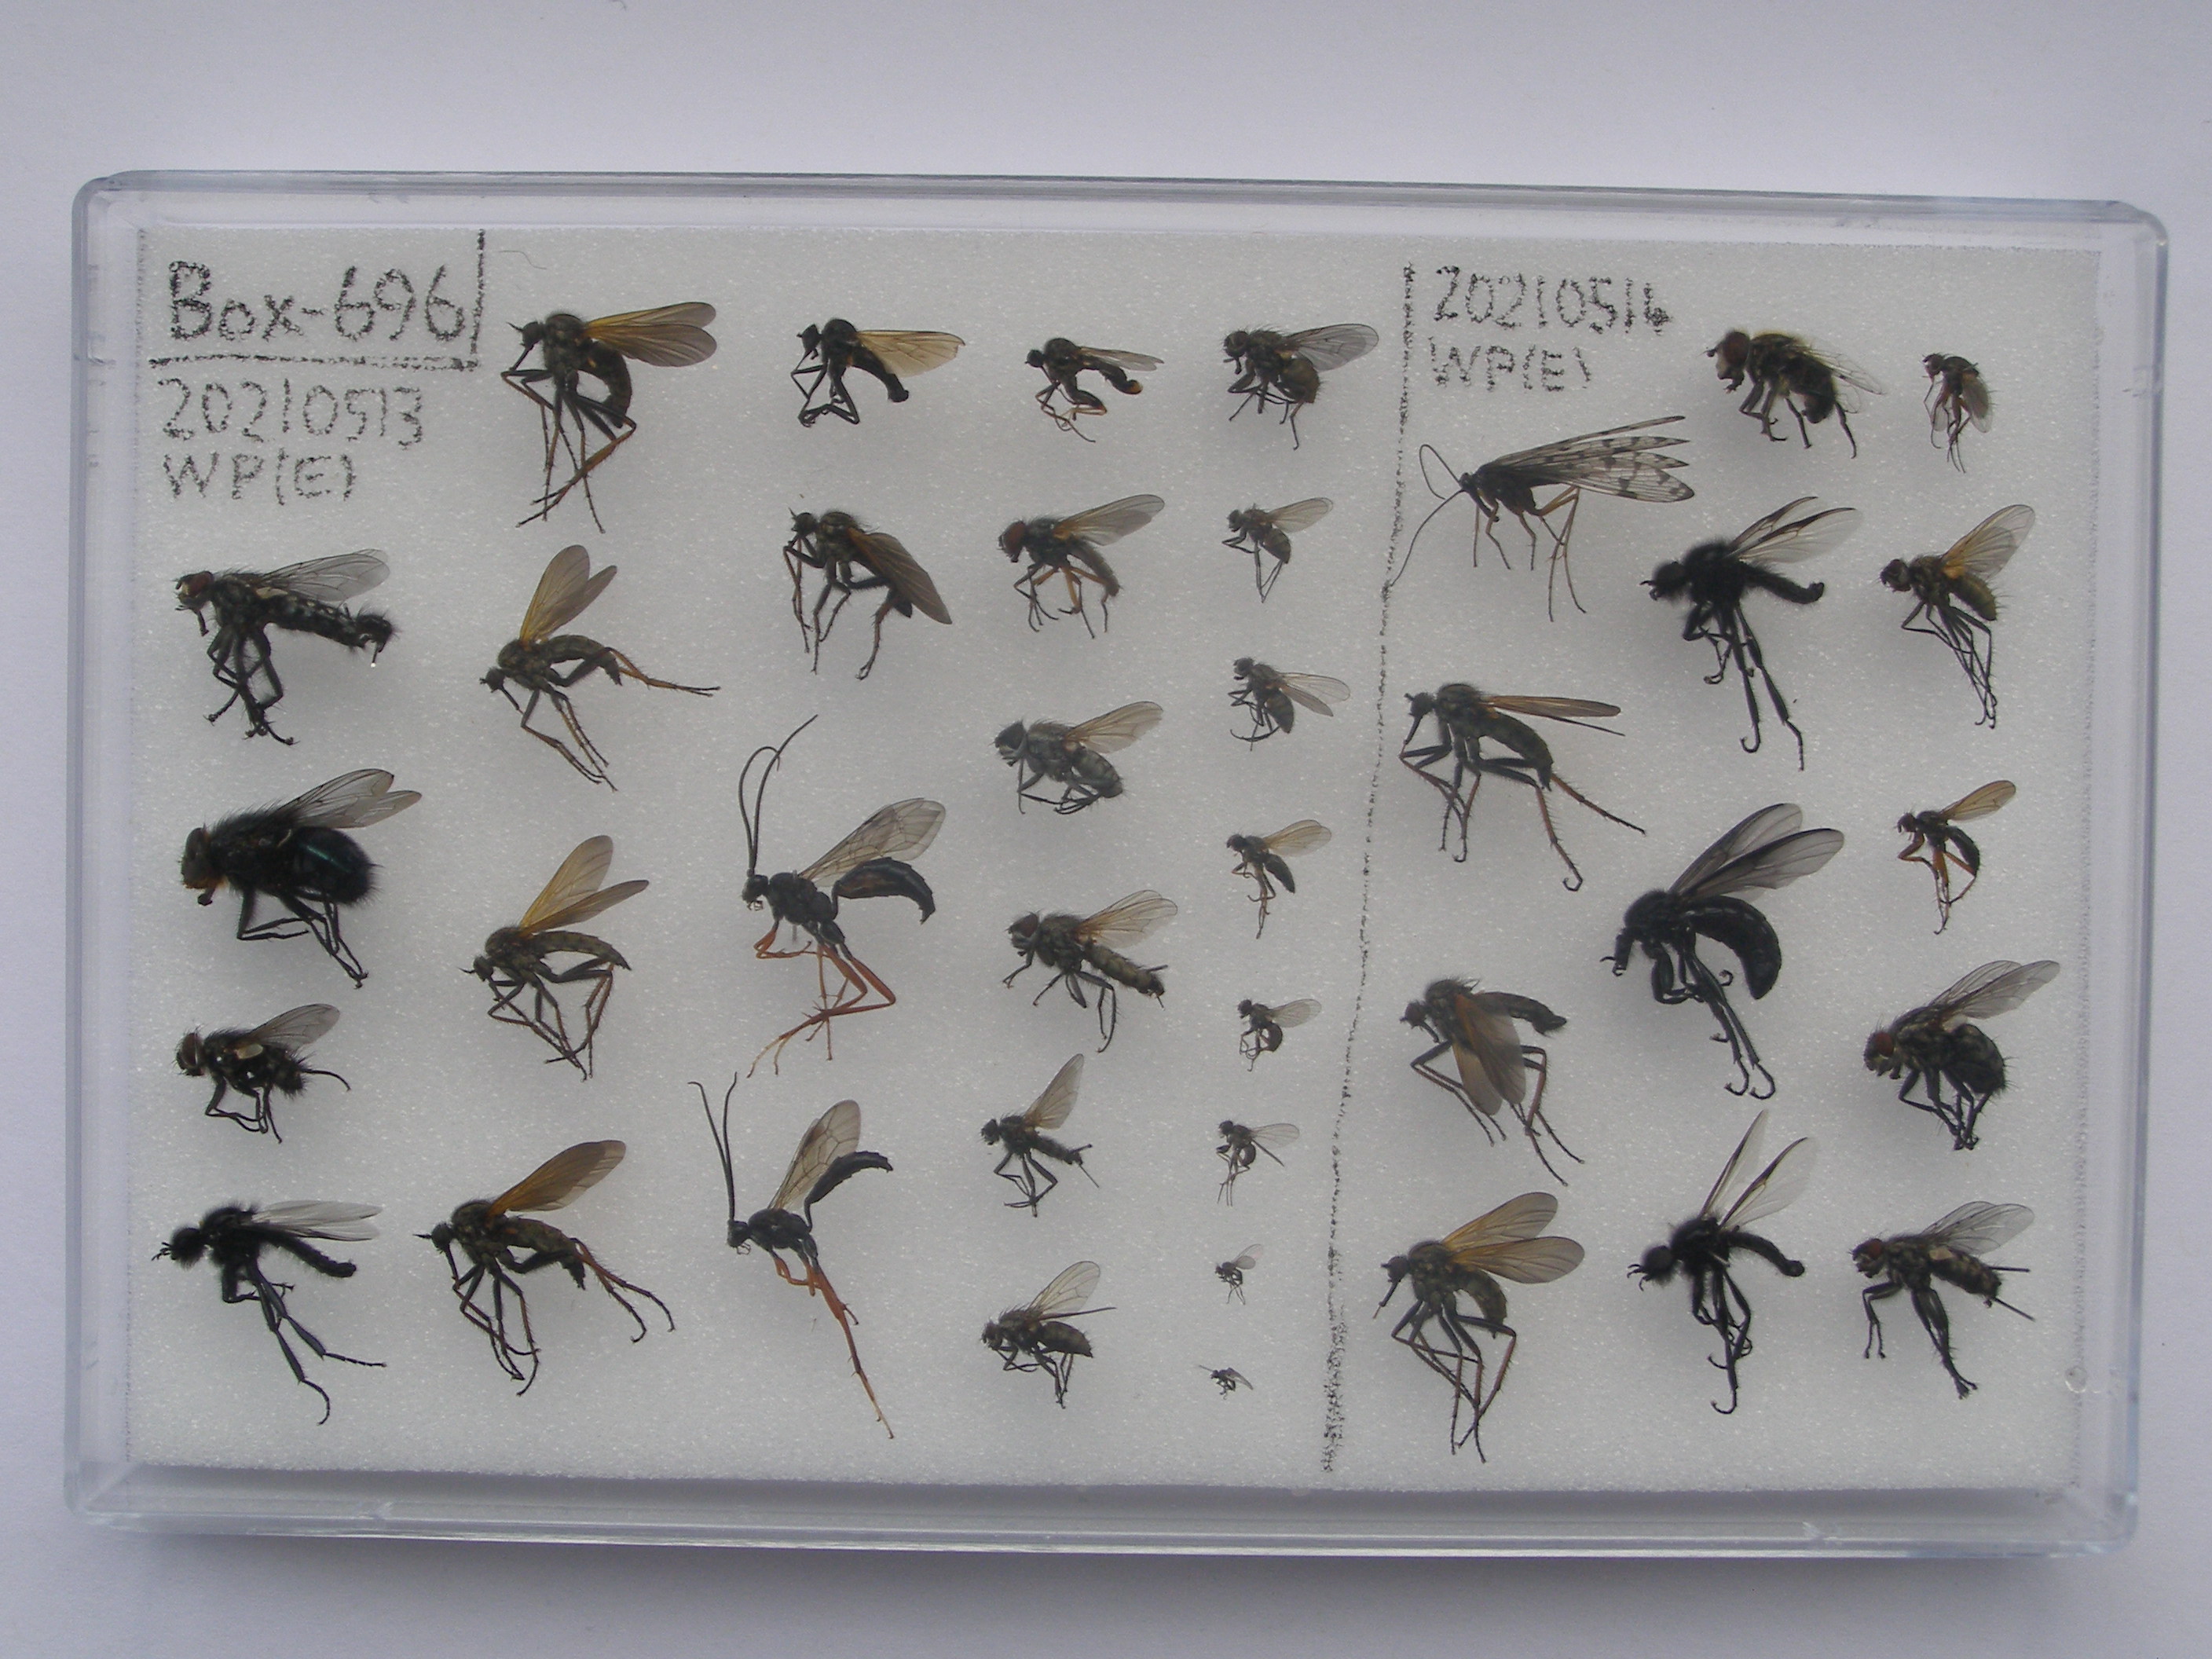 Box-696
20210513
WP(E)
20210514
WP(E)